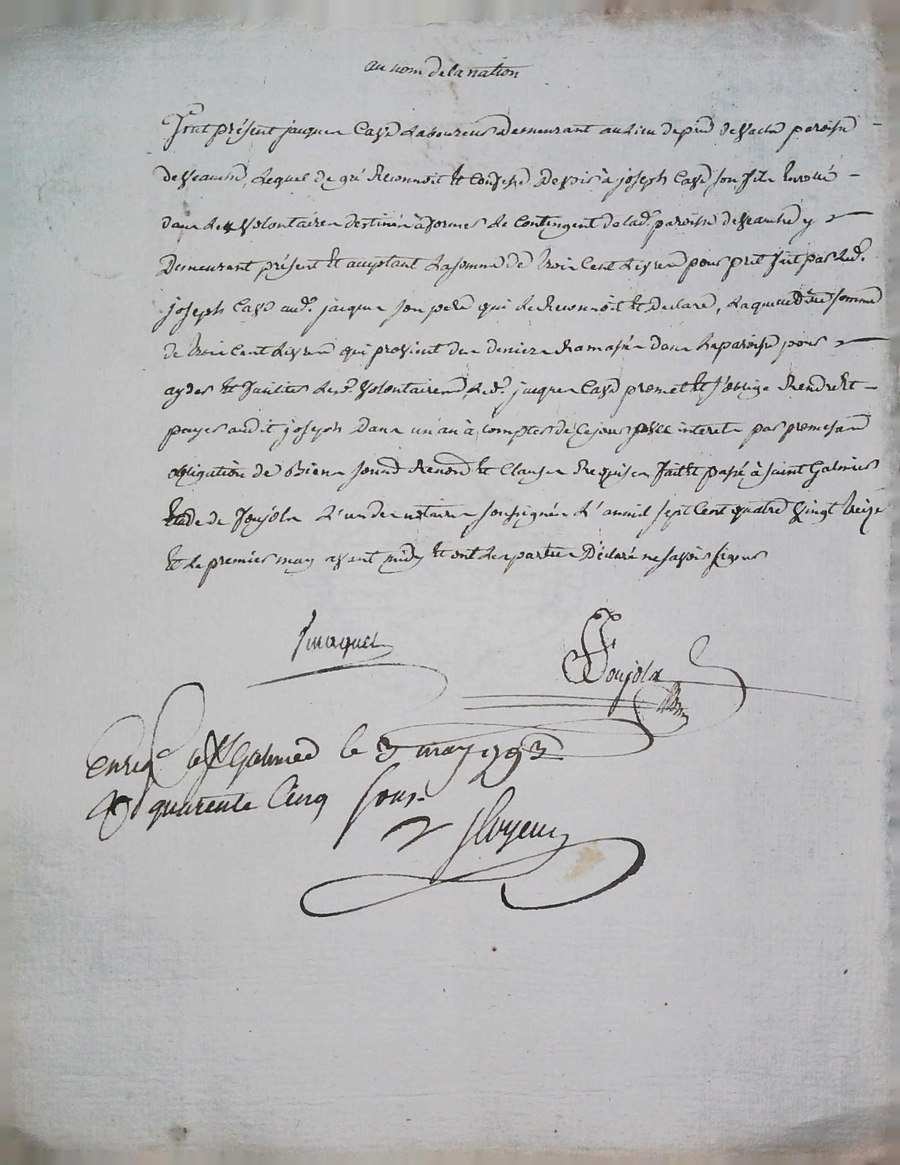 au nom de la nation
Fut présent jacques Cave Laboureur demeurant au lieu de pied de vache paroisse
de veauche, lequel de gré Reconnoit Et Confesse Devoir à joseph Cave son fils Enrollé
dans les volontaires destinés à former le Contingent de lad. paroisse de veauche y
Demeurant présent Et acceptant la somme de trois Cent livres pour prêt fait par led.
joseph Cave aud. jacques son pere qui le Reconnoit Et Declare, laquelle somme
de trois Cent livres qui provient des deniers Ramassés dans la paroisse pour
ayder Et faciliter lesd. volontaires, led. jacques Cave promet Et s'oblige Rendre Et
payer audit joseph dans un an à compter de Ce jour interet par promesse
obligation de Biens soumis Renon Et Clauses Requises fait Et passé à saint Galmier
Etude de foujols l'un des notaires soussignés L'an mil sept Cent quatre vingt treize
Et le premier may avant midy Et ont les parties Déclaré ne savoir signer
foujols
Enreg. a St Galmier le 3 may 1793
quarente Cinq sous